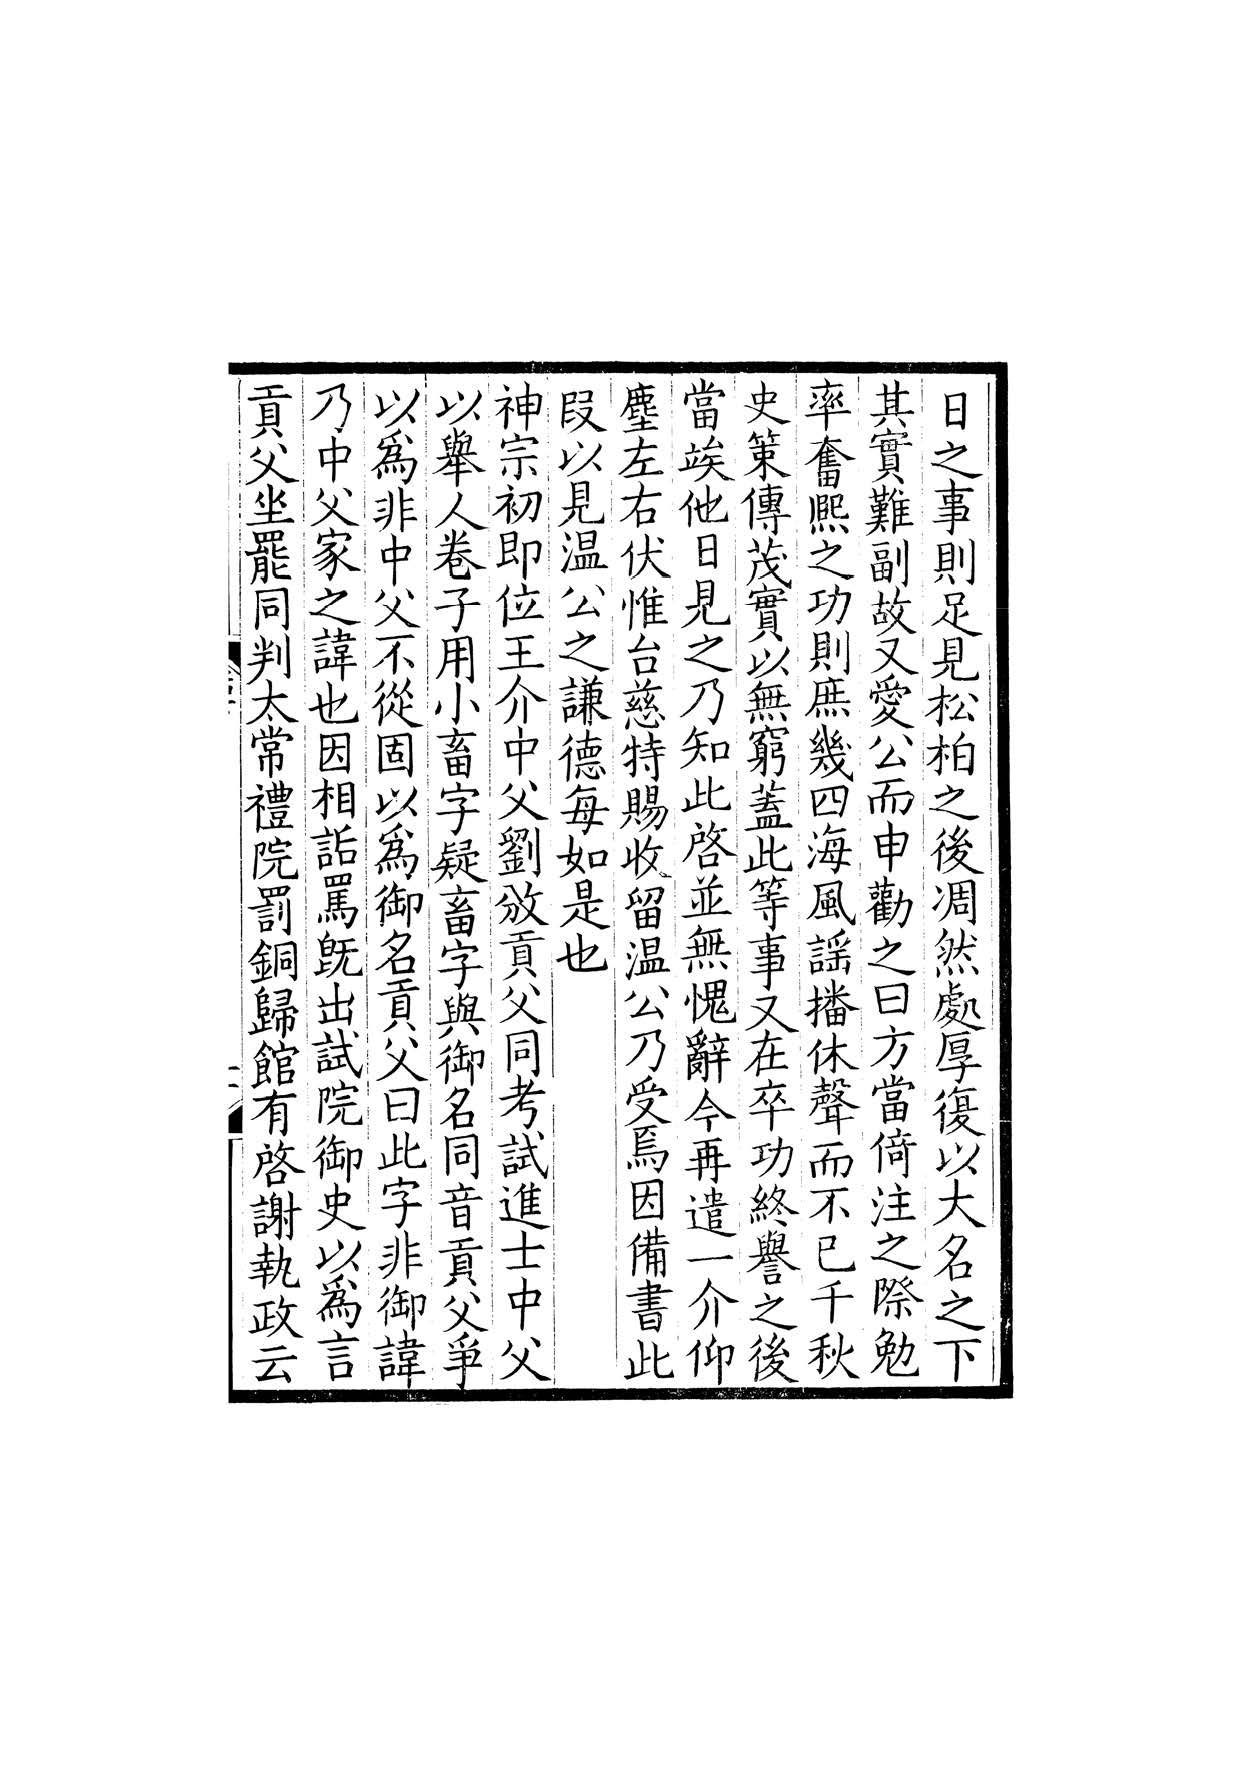 日之事則足見松柏之後凋然處厚復以大名之下
其實難副故又愛公而申勸之曰方當倚注之際勉
率奮熈之功則庶幾四海風謡播休聲而不已千秋
史策傳茂實以無窮蓋此等事又在卒功終譽之後
當竢他日見之乃知此啓並無愧辭今再遣一介仰
塵左右伏惟台慈特賜收留温公乃受焉因備書此
段以見温公之謙德每如是也
神宗初即位王介中父劉攽貢父同考試進士中父
以舉人卷子用小畜字疑畜字與御名同音貢父爭
以爲非中父不從固以爲御名貢父曰此字非御諱
乃中父家之諱也因相詬罵旣出試院御史以爲言
貢父坐罷同判太常禮院罰銅歸館有啓謝執政云